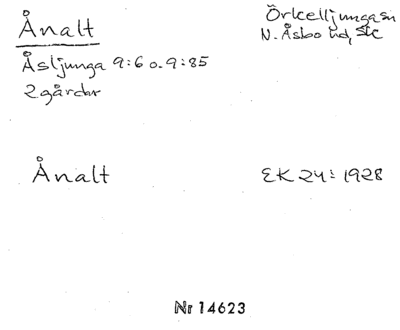 Ånalt
Örkelljunga sn
Åsljunga 9:6 o. 9:85
N. Åsbo hd, Skc
2 gårdar
Ånalt
EK 24: 1928
Nr 14623